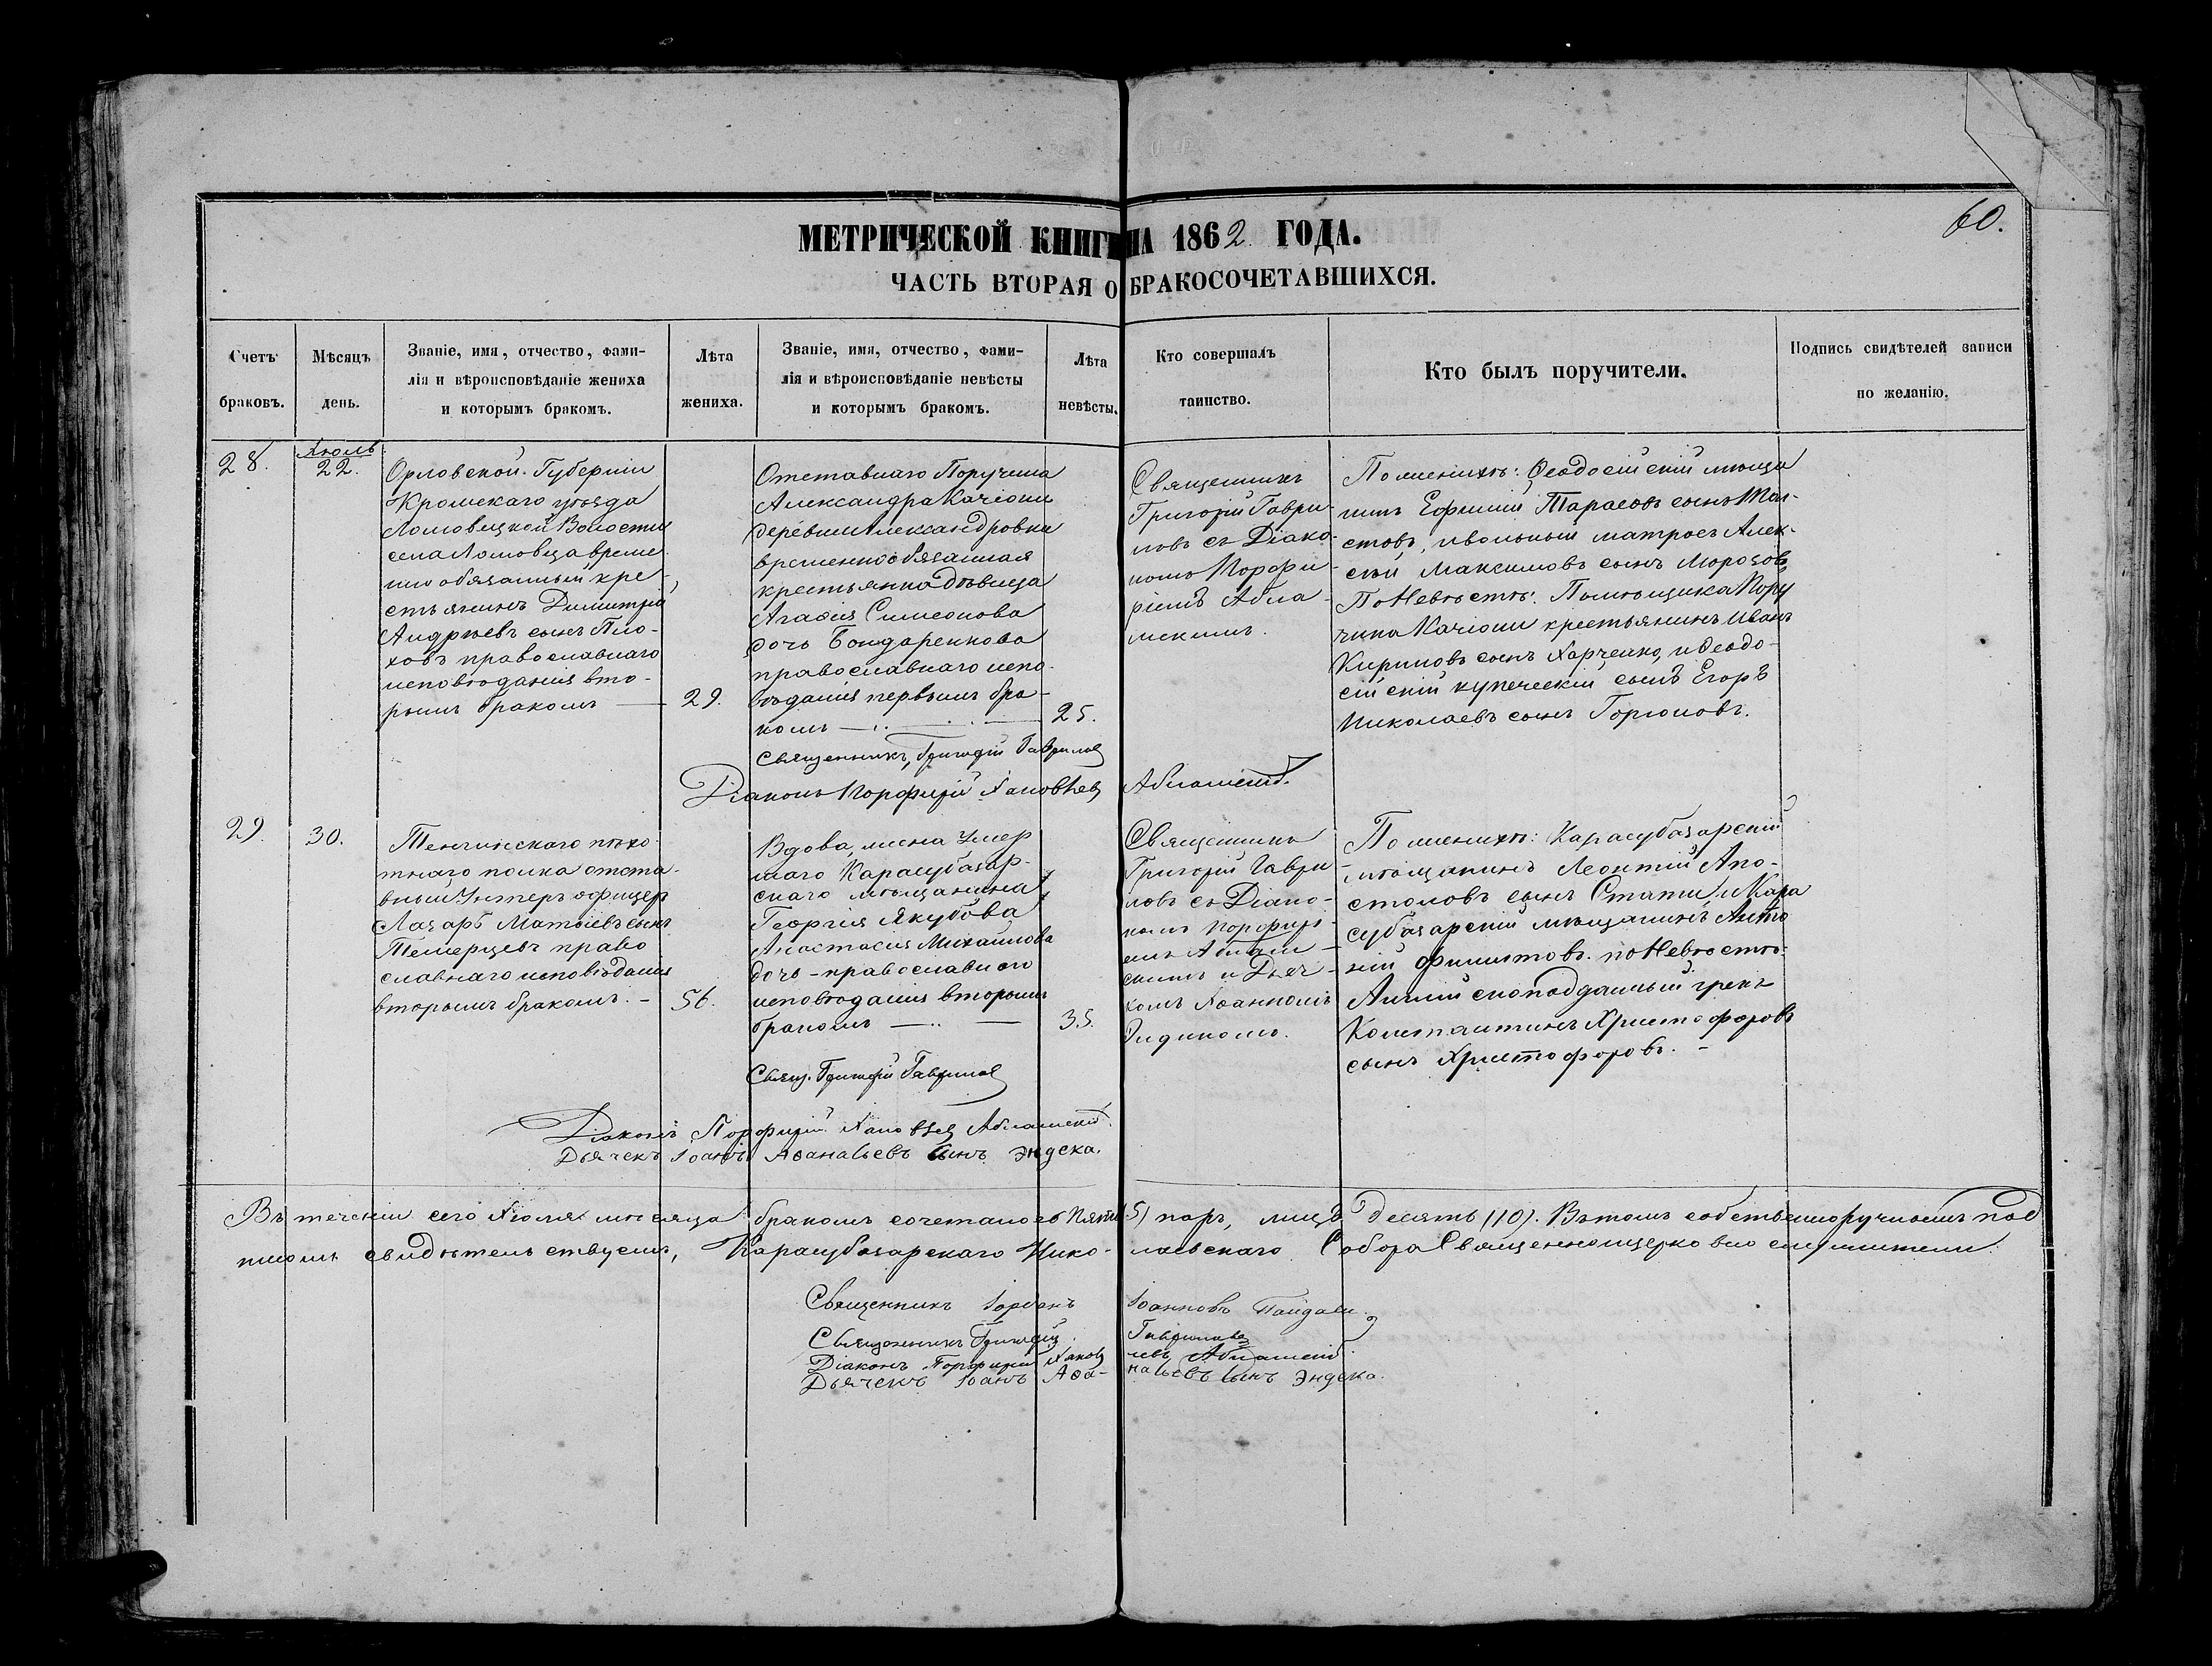 60.
МЕТРИЧЕСКОЙ КНИГИ НА 1862 ГОДА.
ЧАСТЬ ВТОРАЯ О БРАКОСОЧЕТАВШИХСЯ.
Счетъ
браковъ.
Мѣсяцъ
день.
Званіе, имя, отчество, фами-
лія и вѣроисповѣданіе жениха
и которымъ бракомъ.
Лѣта
жениха.
Званіе, имя, отчество, фами-
лія и вѣроисповѣданіе невѣсты
и которымъ бракомъ.
Лѣта
невѣсты.
Кто совершалъ
таинство.
Кто былъ поручители.
Подпись свидѣтелей записи
по желанію.
28.
Іюль
22.
Орловской Губерніи
Кромскаго уѣзда
Ломовецкой Волости
села Ломовца време-
нно обязанный кре-
стьянинъ Димитрій
Андреевъ сынъ Пло-
ховъ православнаго
исповѣданія вто-
рымъ бракомъ
29.
Отставнаго Поручика
Александра Качіони
деревни Александровки
временнообязанная
крестьянка дѣвица
Агаѳія Симеонова
дочь Бондаренкова
православнаго испо-
вѣданія первымъ бра-
комъ
25.
Священникъ
Григорій Гаври-
ловъ съ Діако-
номъ Порфи-
ріемъ Абла-
мскимъ.
По женихѣ: Ѳеодосійскій мѣща
нинъ Ефимій Тарасовъ сынъ Тол-
стовъ, и вольный матросъ Алек-
сѣй Максимовъ сынъ Морозовъ
По Невѣстѣ: Помѣщика Пору
чика Качіони крестьянинъ Иванъ
Кириловъ сынъ Харченко, и Ѳеодо-
сійскій купеческій сынъ Егоръ
Николаевъ сынъ Горюновъ.
Священникъ, Григорій Гавриловъ
Діаконъ Порфирій Яковлев Абламскій.
29.
30.
Тенгинскаго пѣхо-
тнаго полка отста-
вный Унтеръ офицеръ
Лазарь Матѳіевъ сынъ
Темерцевъ право
славнаго исповѣданія
вторымъ бракомъ. –
56.
Вдова, жена Умер
шаго Карасубазар-
скаго мѣщанина
Георгія Якубова
Анастасія Михайлова
дочь – православнаго
исповѣданія вторымъ
бракомъ
35.
Священникъ
Григорій Гаври
ловъ съ Діако-
номъ Порфирі-
емъ Аблам-
скимъ и Дьяч-
комъ Іоанномъ
Эндикомъ.
По женихѣ: Карасубазарскій
мѣщанинъ Леонтій Апо-
столовъ сынъ Стати, и Кара
субазарскій мѣщанинъ Анто
ній Филитовъ. по Невѣстѣ:
Англійскоподданный грекъ
Константинъ Христофоровъ
сынъ Христофоровъ. –
Свящ. Григорій Гаврилов
Діаконъ Порфирій Яковлев Абламскій.
Дьячекъ Іоаннъ Аѳанасьевъ сынъ Эндека.
Въ теченіи сего Іюля мѣсяца бракомъ сочеталось Пять (5) паръ, лицъ Десять (10). Въ томъ собственноручнымъ под
писомъ свидѣтельствуемъ, Карасубазарскаго Нико- лаевскаго Собора Священноицерковно служители:
Священникъ Іорданъ Іоанновъ Пайдали.
Священникъ Григорій Гавриловъ
Діаконъ Порфирій Яковлевъ Абламскій.
Дьячекъ Іоаннъ Аѳа- насьевъ сынъ Эндека.